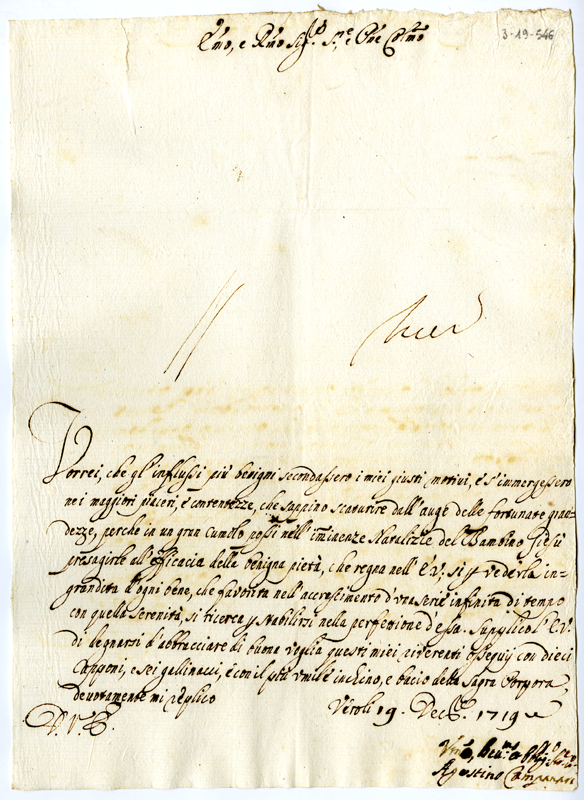 3-19-546
Emo, e Rmo Sigre Sre, e Pne Colmo
Vorrei, che gl'influssi più benigni secondassero i miei giusti motivi, e s'immergessero
ne i maggiori piaceri, e contentezze, che sappino scaturire dall'auge delle fortunate gran-
dezze, perche in un gran Cumolo possi nell'iminenze Natalizie del Bambino Giesù
presagirle all'efficacia della benigna pietà, che regna nell'E.V.; si p vederla in-
grandita d'ogni bene, che favorita nell'accrescimento d'una serie infinita di tempo
con quella serenità, si ricerca p stabilirsi nella perfettione d'essa. Supplico l'E.V.
di degnarsi d'abbracciare di buona voglia questi miei riverenti ossequij con dieci
Capponi, e sei gallinacci, e con il più umile inchino, e bacio della Sagra Porpora,
devotamente mi replico
Veroli 19. Decbre 1719
D.V.E.
Agostino